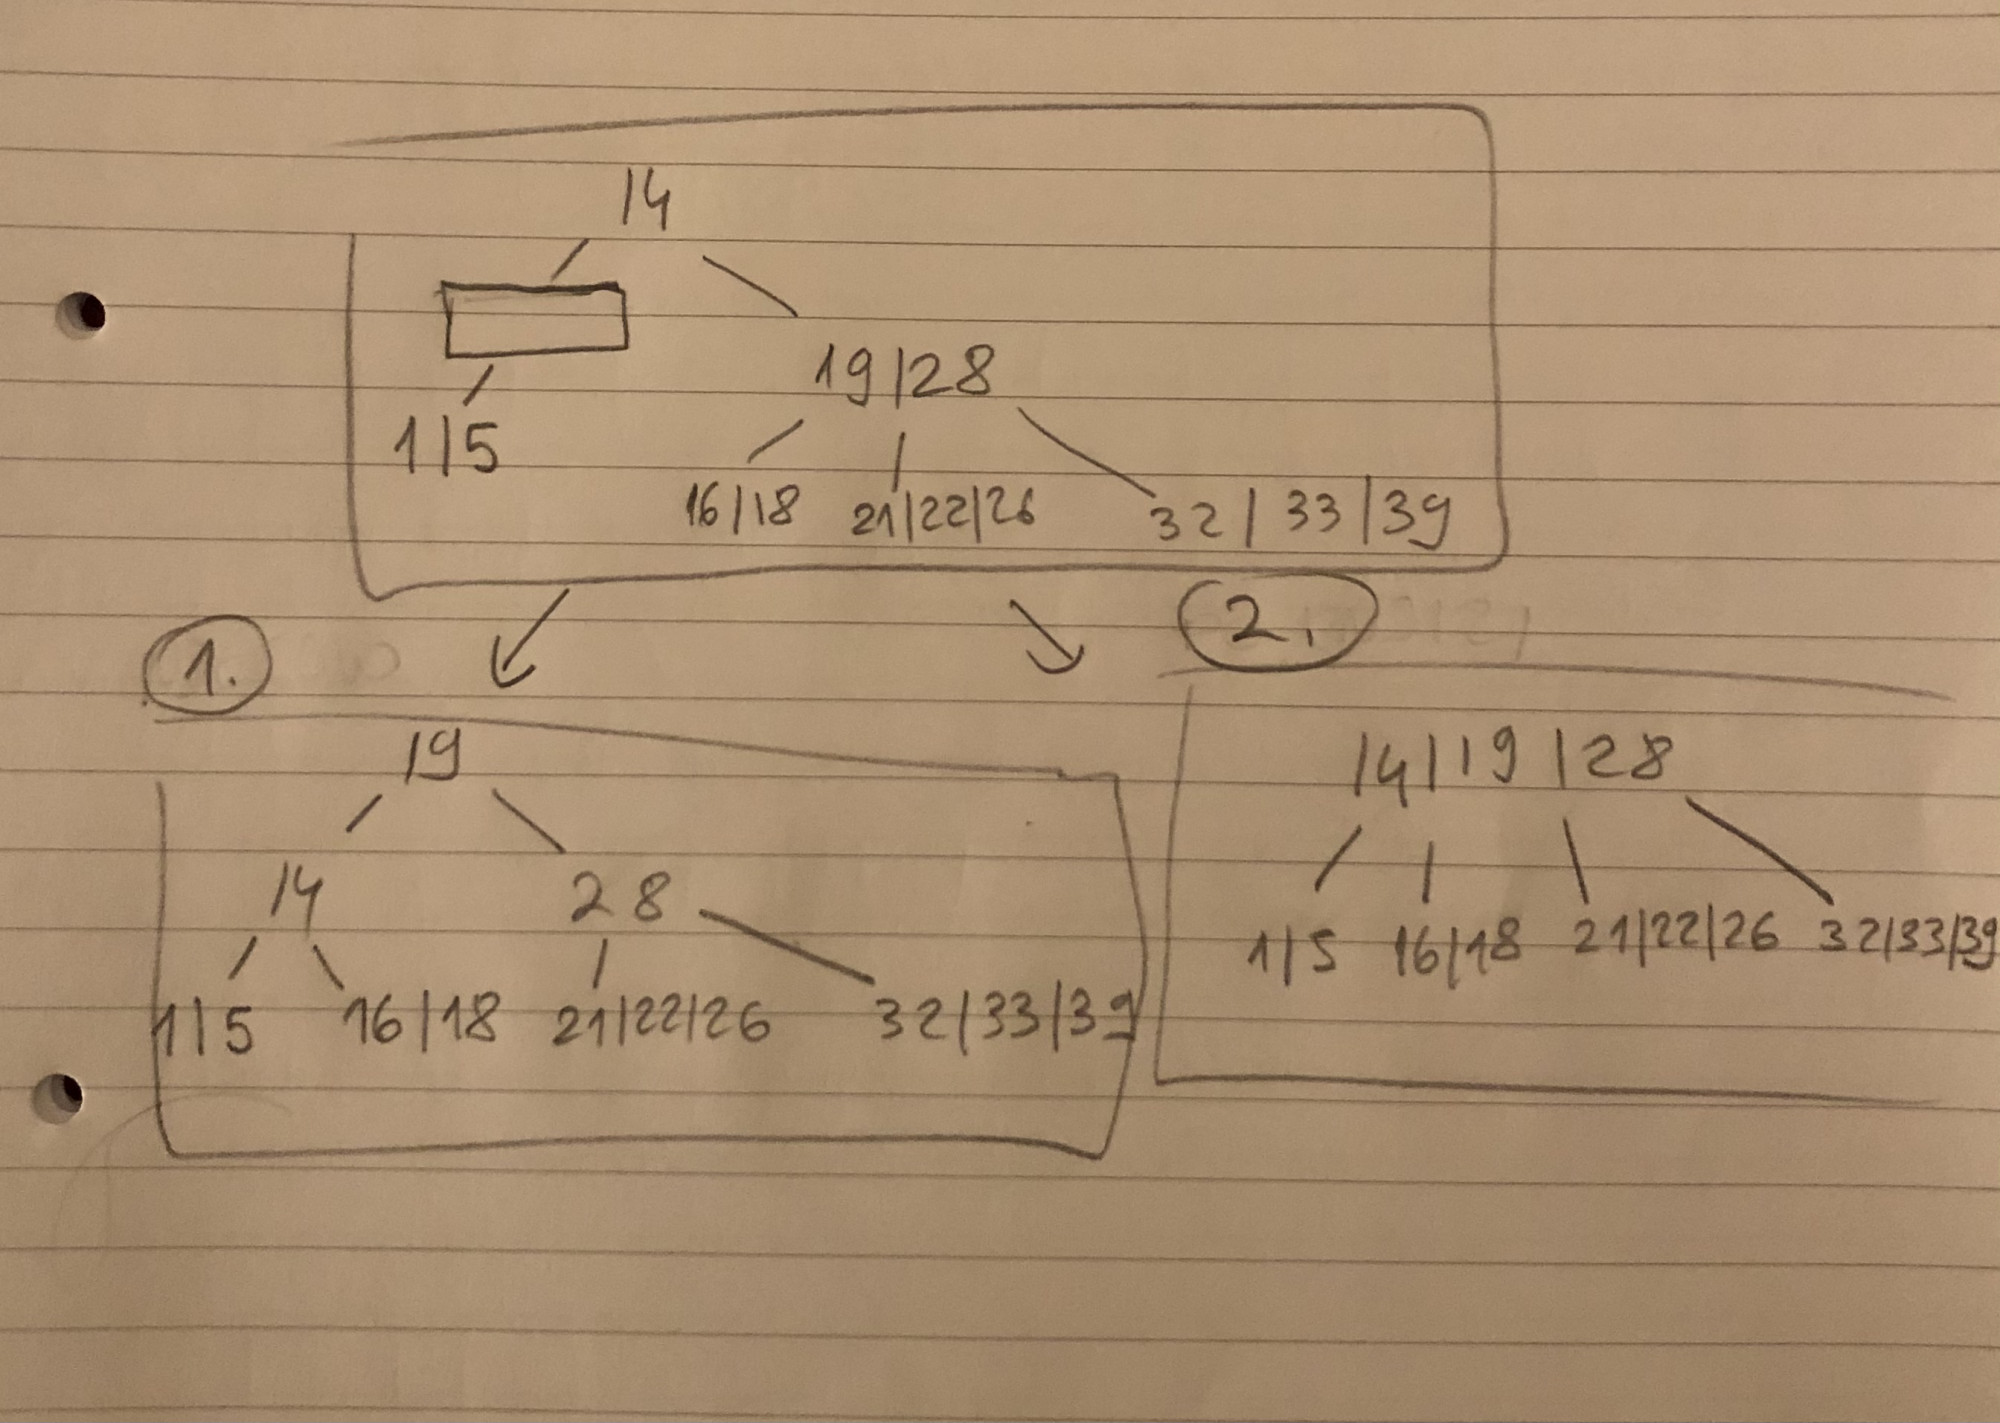 14
19|28
1|5
16|18 21|22|26 32|33|39
1.
2.
19
14|19|28
14 28
1|5 16|18 21|22|26 32|33|39
1|5 16|18 21|22|26 32|33|39